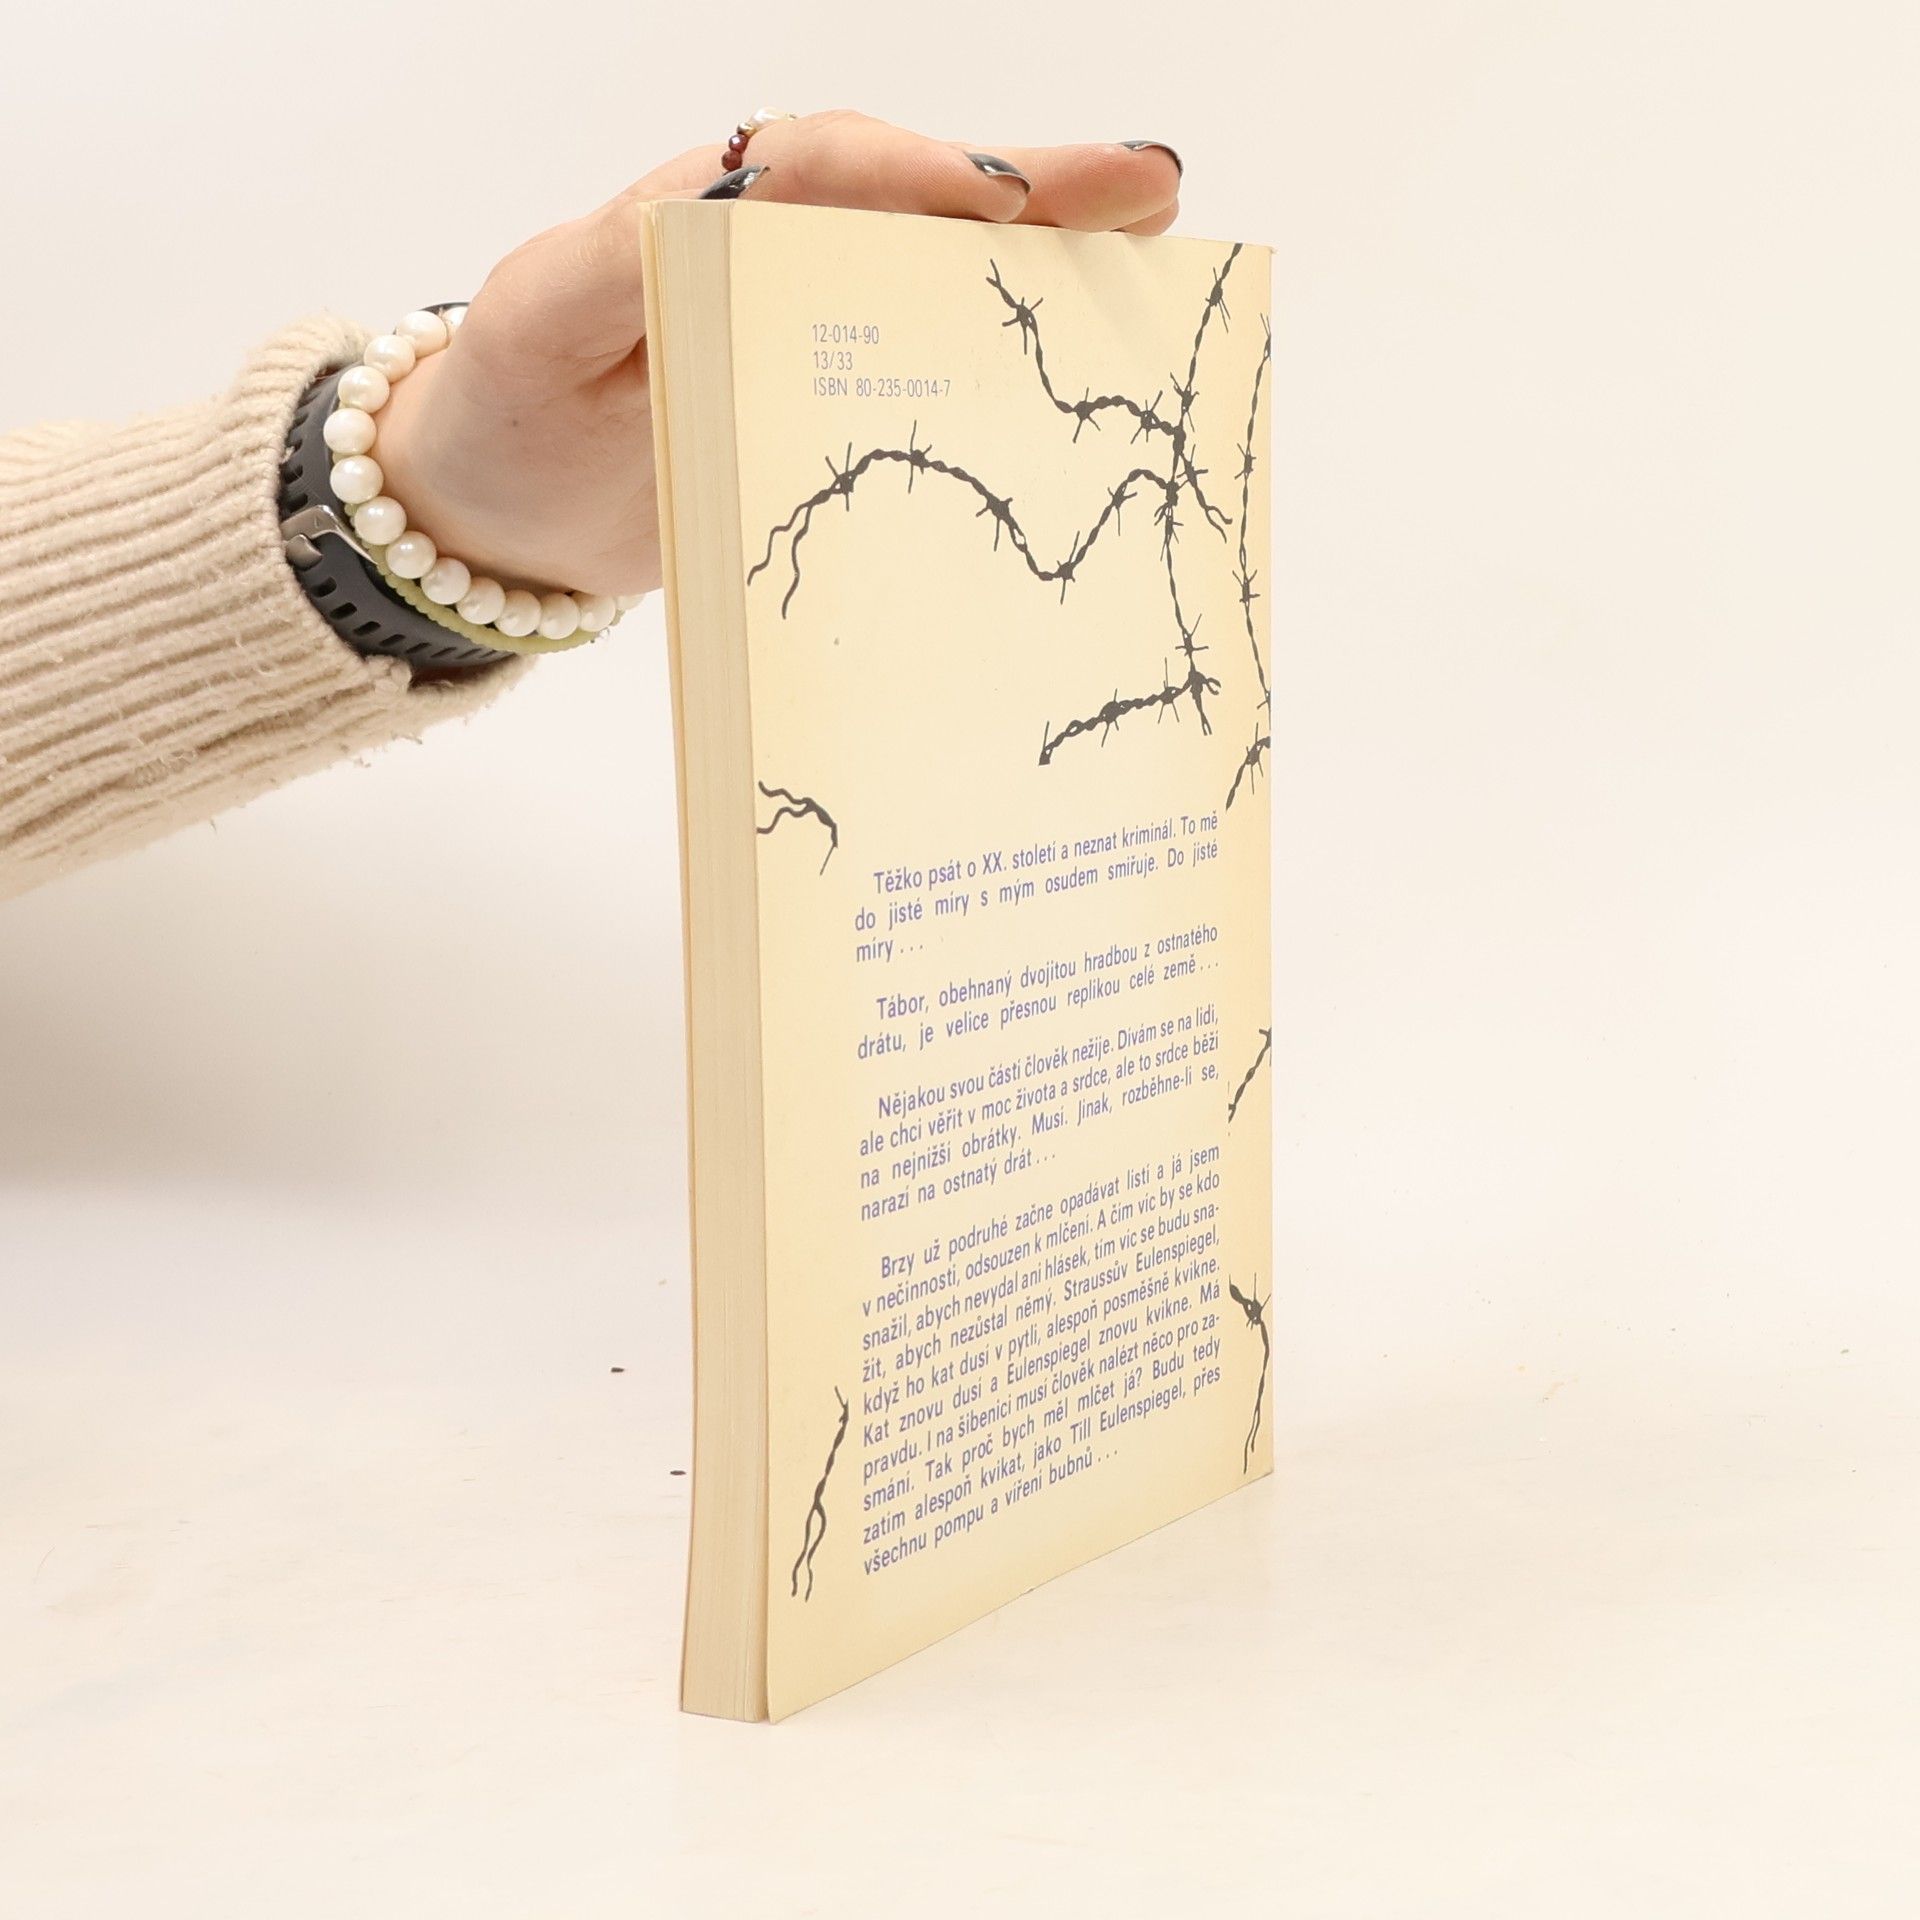 12-014-90
13/33
ISBN 80-235-0014-7
Těžko psát o XX. století a neznat kriminál. To mě
do jisté míry s mým osudem smiřuje. Do jisté
míry ...
Tábor, obehnaný dvojitou hradbou z ostnatého
drátu, je velice přesnou replikou celé země ...
Nějakou svou částí člověk nežije. Dívám se na lidi,
ale chci věřit v moc života a srdce, ale to srdce běží
na nejnižší obrátky. Musí. Jinak, rozběhne-li se,
narazí na ostnatý drát ...
Brzy už podruhé začne opadávat listí a já jsem
v nečinnosti, odsouzen k mlčení. A čím víc by se kdo
snažil, abych nevydal ani hlásek, tím víc se budu sna-
žit, abych nezůstal němý. Straussův Eulenspiegel,
když ho kat dusí v pytli, alespoň posměšně kvikne.
Kat znovu dusí a Eulenspiegel znovu kvikne. Má
pravdu. I na šibenici musí člověk nalézt něco pro za-
smání. Tak proč bych měl mlčet já? Budu tedy
zatím alespoň kvikat, jako Till Eulenspiegel, přes
všechnu pompu a víření bubnů ...